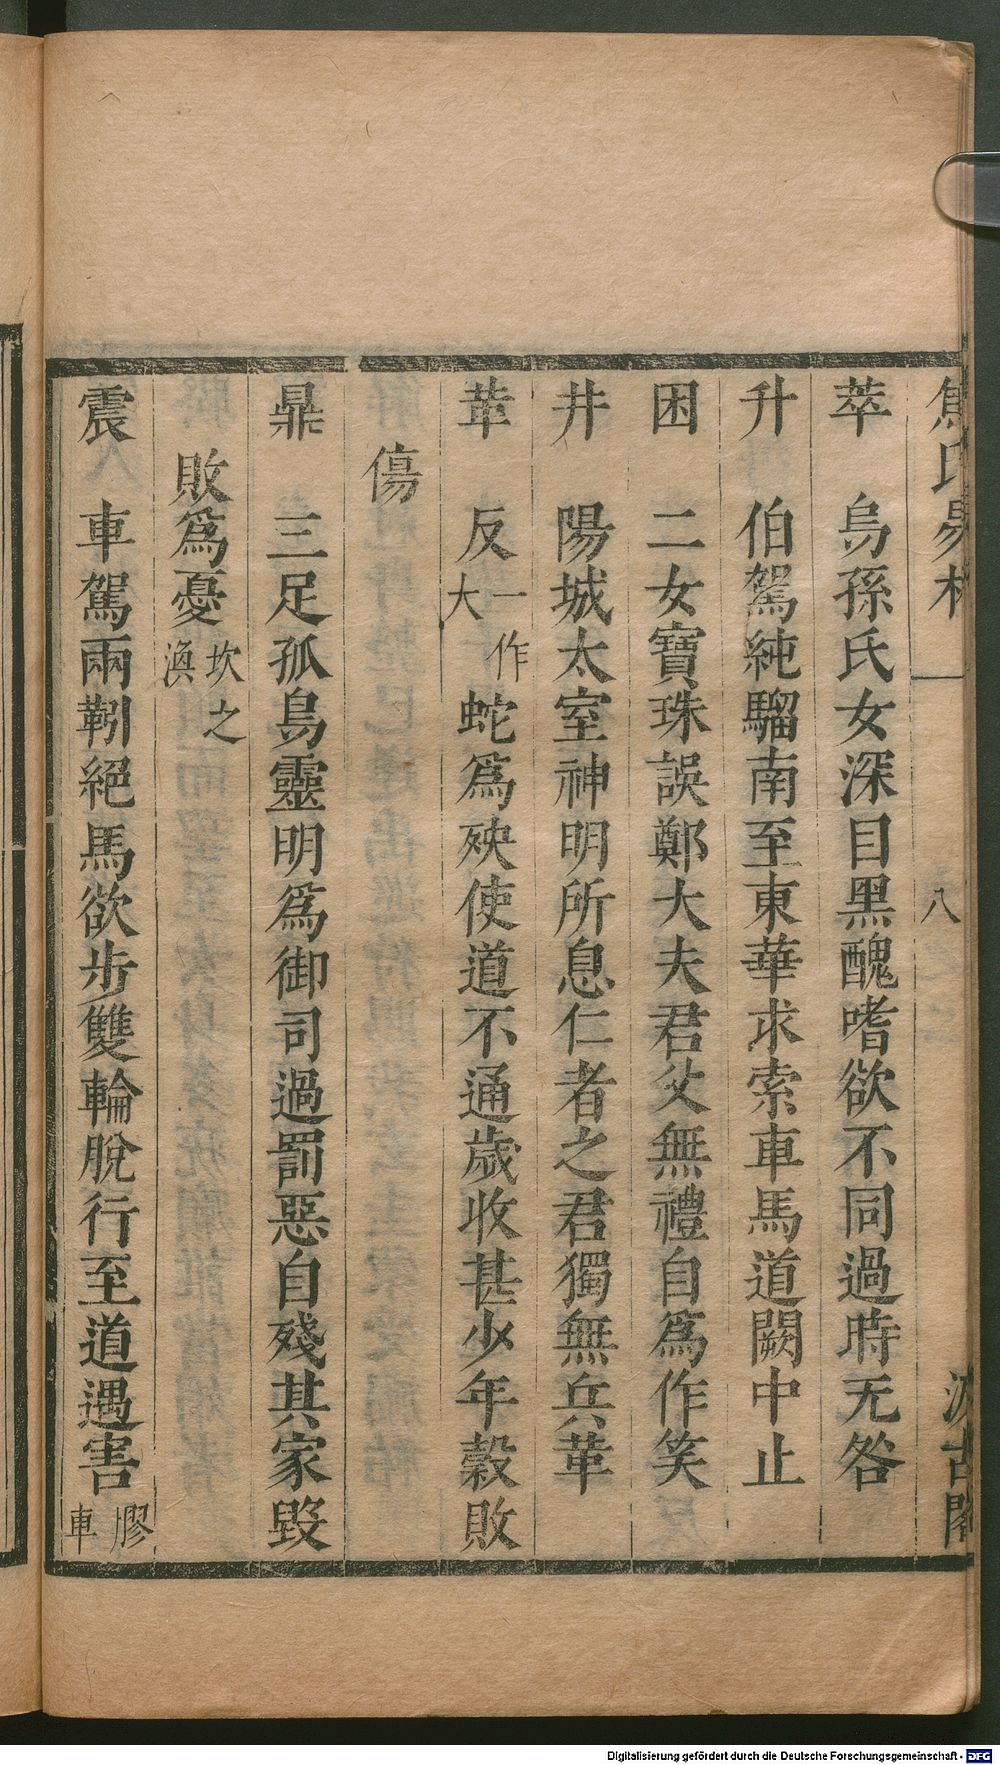 焦氏易林 一 八 汲古閣
萃 烏孫氏女深目黑醜嗜欲不同過時无咎
升 伯駕純騮南至東華求索車馬道闕中止
困 二女寶珠誤鄭大夫君父無禮自爲作笑
井 陽城太室神明所息仁者之君獨無兵革
革 反一作大蛇爲殃使道不通歲收甚少年穀敗
傷
鼎 三足孤烏靈明爲御司過罰惡自殘其家毀
敗爲憂坎之渙
震 車駕兩靷絕馬欲步雙輪脫行至道遇害膠車
Digitalisierung gefördert durch die Deutsche Forschungsgemeinschaft - DFG